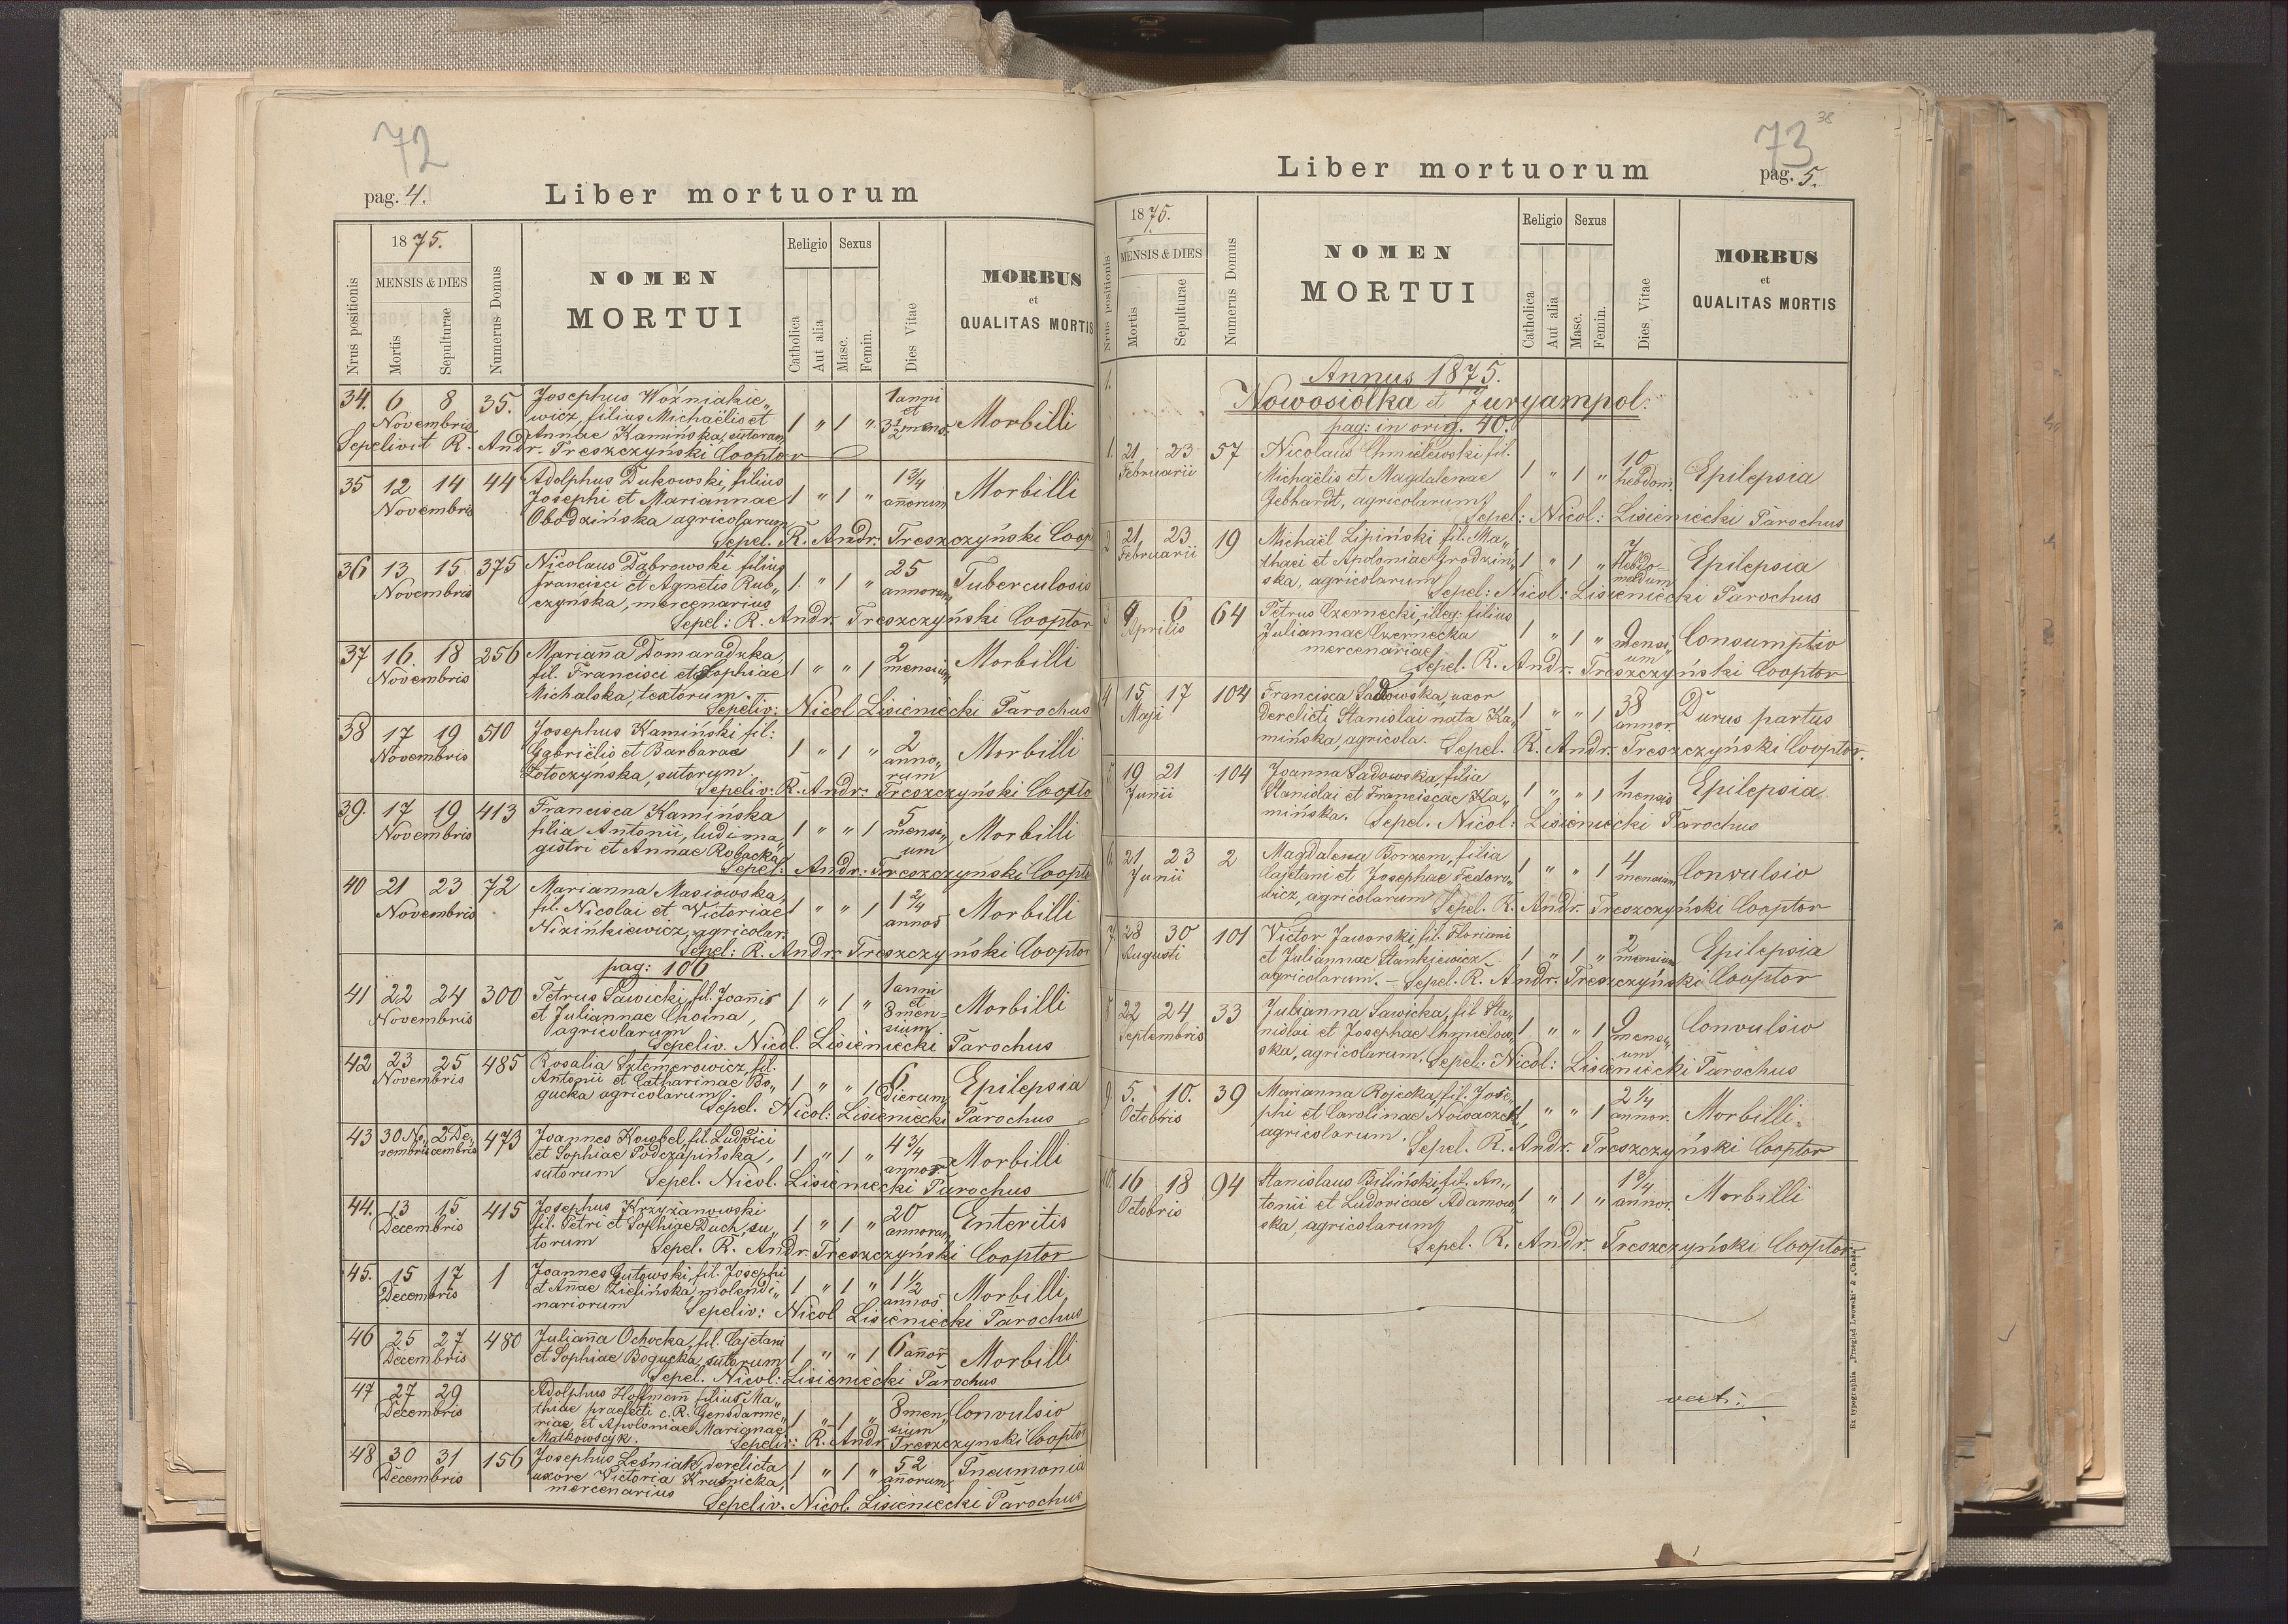 72
pag. 4.
Liber mortuorum
1875.
Religio
Sexus
MENSIS & DIES
Nrus positionis
Mortis
Sepulturae
Numerus Domus
NOMEN
MORTUI
Catholica
Aut alia
Masc.
Femin.
Dies Vitae
MORBUS
et
QUALITAS MORTIS
34. 6 8 35. Josephus Woźniakie„ 1 anni
Novembris wicz, filius Michaëlis et 1 " 1 " et Morbilli
Annae Kamińska, sutorum 3 1/2 mens.
Sepelivit R. Andr. Treszczyński Cooptor
35 12 14 44 Adolphus Dukowski, filius 1 3/4
Novembris Josephi et Mariannae 1 " 1 " añorum Morbilli
Obodzińska agricolarum
Sepel. R. Andr. Treszczyński Coop
36 13 15 375 Nicolaus Dąbrowski filius 25
Novembris Francisci et Agnetis Rub„ 1. " 1 " annorum Tuberculosis
czyńska, mercenarius
Sepel: R. Andr. Treszczyński Cooptor
37 16. 18 256 Mariaña Domaradzka, 2
Novembris fil. Francisci et Sophiae 1 " " 1 mensium Morbilli
Michalska, textorum.
Sepeliv: Nicol Lisieniecki Parochus
38 17 19 510 Josephus Kamiński fil: 2
Novembris Gabriëlis et Barbarae 1 " 1 " anno„ Morbilli
Zotoczyńska, sutorum. rum
Sepeliv: R. Andr: Treszczyński Coopto
39. 17 19 413 Francisca Kamińska 5
Novembris filia Antonii, ludima„ 1 " " 1 mensi„ Morbilli
gistri et Annae Robacka um
Sepel: Andr: Treszczyński Coopto
40 21 23 72 Marianna Masiowska, 1 2/4
Novembris fil. Nicolai et Victoriae 1 " " 1 annor Morbilli
Nizińkiewicz, agricolar.
Sepel: R. Andr Treszczyński Cooptor
pag: 106
41 22 24 300 Petrus Sawicki, fil. Joañis 1 anni
Novembris et Juliannae Choina, 1 " 1 " et 8 men= Morbilli
agricolarum sium.
Sepeliv. Nicol. Lisieniecki Parochus
42 23 25 485 Rosalia Sztemerowicz, fil. 6
Novembris Antonii et Catharinae Bo„ 1 " " 1 dierum Epilepsia
gucka agricolarum.
Sepel. Nicol: Lisieniecki Parochus
43 30 No„ 2 De„ 473 Joannes Kowbel, fil. Ludvici 4 3/4
vembris cembris et Sophiae Podczapińska, 1 " 1 " annor. Morbilli
sutorum Sepel. Nicol. Lisieniecki Parochus
44. 13 15 415 Josephus Krzyżanowski 20
Decembris fil. Petri et Sophiae Duch, su„ 1 " 1 " annorum Enteritis
torum Sepel. R. Andr Treszczyński Cooptor
45. 15 17 1 Joannes Gutowski, fil. Josephi 1 1/2
Decembris et Añae Zielińska, molendi„ 1 " 1 " annor Morbilli
nariorum Sepeliv: Nicol Lisieniecki Parochus
46 25 27 480 Juliaña Ochocka, fil. Cajetani 6 añor
Decembris et Sophiae Bogucka, sutorum 1 " " 1 Morbilli
Sepel. Nicol: Lisieniecki Parochus
47 27 29 Adolphus Hoffmañ, filius Ma„
Decembris thiae praefecti c. R. Gensdarme„ 1 " 1 " 8 men„ Convulsio
riae et Apoloniae Mariañae sium
Matkowscyk. Sepeliv: R. Andr Treszczynski Coopto
48 30 31 156 Josephus Leśniak, derelicta 52
Decembris uxore Victoria Kruśnicka, 1 " 1 " añorum Pneumonia
mercenarius
Sepeliv. Nicol. Lisieniecki Parochus
73
38
Liber mortuorum
pag. 5.
1875.
Religio
Sexus
MENSIS & DIES
Nrus positionis
Mortis
Sepulturae
Numerus Domus
NOMEN
MORTUI
Catholica
Aut alia
Masc.
Femin.
Dies Vitae
MORBUS
et
QUALITAS MORTIS
1.
Annus 1875.
Nowosiółka et Juryampol:
pag: in orig. 40.
1. 21 23 57 Nicolaus Chmielewski, fil. 10
Februarii Michaëlis et Magdalenae 1 " 1 " hebdom. Epilepsia
Gebhardt, agricolarum
Sepel: Nicol: Lisieniecki Parochus
2 21 23 19 Michaël Lipiński, fil. Ma„ 7
Februarii thaei et Apoloniae Grodziń„ 1 " 1 " Hebdo- Epilepsia
ska, agricolarum madum
Sepel: Nicol: Lisieniecki Parochus
3 4 6 64 Petrus Czernecki, illeg: filius
Aprilis Juliannae Czernecka 1 " 1 " 9 mensi„ Consumptio
mercenariae um
Sepel. R. Andr. Treszczyński Cooptor
4 15 17 104 Francisca Sadowska, uxor 38
Maji derelicti Stanislai nata Ka„ 1 " " 1 annor. Durus partus
mińska, agricola. Sepel. R. Andr. Treszczyński Cooptor.
5. 19 21 104 Joanna Sadowska, filia 1
Junii Stanislai et Franciscae Ka„ 1 " " 1 mensis Epilepsia
mińska. Sepel. Nicol: Lisieniecki Parochus
6. 21 23 2 Magdalena Borzem, filia 4
Junii Cajetani et Josephae Fedoro„ 1 " " 1 mensium Convulsio
wicz, agricolarum Sepel. R. Andr. Treszczyński Cooptor
7. 28 30 101 Victor Jaworski, fil. Floriani 2
Augusti et Juliannae Stankiewicz 1 " 1 " mensium Epilepsia
agricolarum. - Sepel. R. Andr. Treszczyński Cooptor
8 22 24 33 Julianna Sawicka, fil Sta„ 9
Septembris nislai et Josephae Chmielow„ 1 " " 1 mensi„ Convulsio
ska, agricolarum. um
Sepel: Nicol: Lisieniecki Parochus
9. 5. 10. 39 Marianna Rojecka, fil. Jose„ 2 1/4
Octobris phi et Carolinae Nowaczek, 1 " " 1 annor. Morbilli.
agricolarum. Sepel. R. Andr. Treszczyński Cooptor
10. 16 18 94 Stanislaus Biliński, fil. An„ 1 3/4
Octobris tonii et Ludovicae Adamow„ 1 " 1 " annor. Morbilli
ska, agricolarum
Sepel. R. Andr. Treszczyński Cooptor
vert:
Ex typographia „Przegląd Lwowski" &